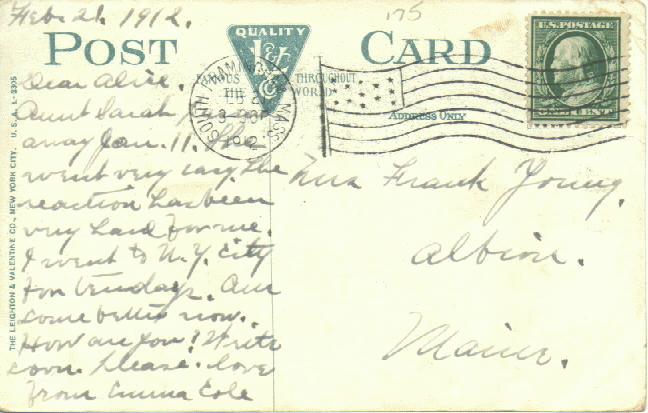 Feb. 21. 1912.
175
POST CARD
QUALITY
L&V Co
FAMOUS THROUGHOUT
THE WORLD
U.S. POSTAGE
ONE CENT
SOUTH FRAMINGHAM MASS
FEB 21
3-30P
1912
ADDRESS ONLY
Dear Alice.
Aunt Sarah
away Jan. 11. She
went very easy. The
reaction has been
very hard for me.
I went to N.Y. City
for ten days. Am
some better now.
How are you? Write
soon. Please. Love
from Emma Cole
Mrs Frank Young.
Albion.
Maine.
THE LEIGHTON & VALENTINE CO., NEW YORK CITY. U. S. A. L-3305